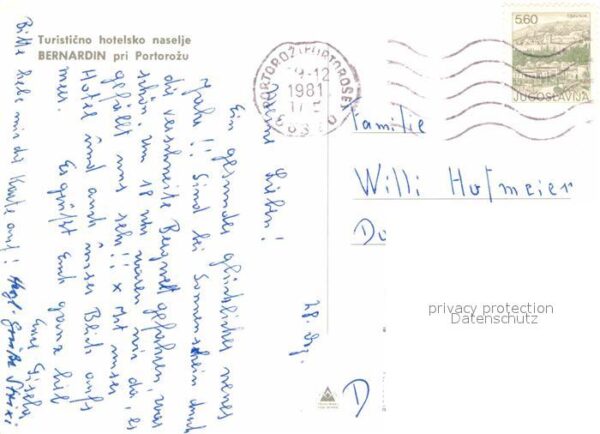 Turistično hotelsko naselje
BERNARDIN pri Portorožu
28. Dez.
Meine Lieben!
Ein gesundes glückliches neues
Jahr!! Sind bei Sonnenschein durch
die verschneite Bergwelt gefahren, war
schön um 18 Uhr waren wir da, es
gefällt uns sehr!! x Mit unser
Hotel und auch unser Blick aufs
Meer. Es grüßt Euch ganz lieb
Eure Gisela
Bitte hebe mir die Karte auf!
Hzgl. Grüße
PORTOROŽ PORTOROSE
-12
1981
5.60
JUGOSLAVIJA
Familie
Willi Hofmeier
D
privacy protection
Datenschutz